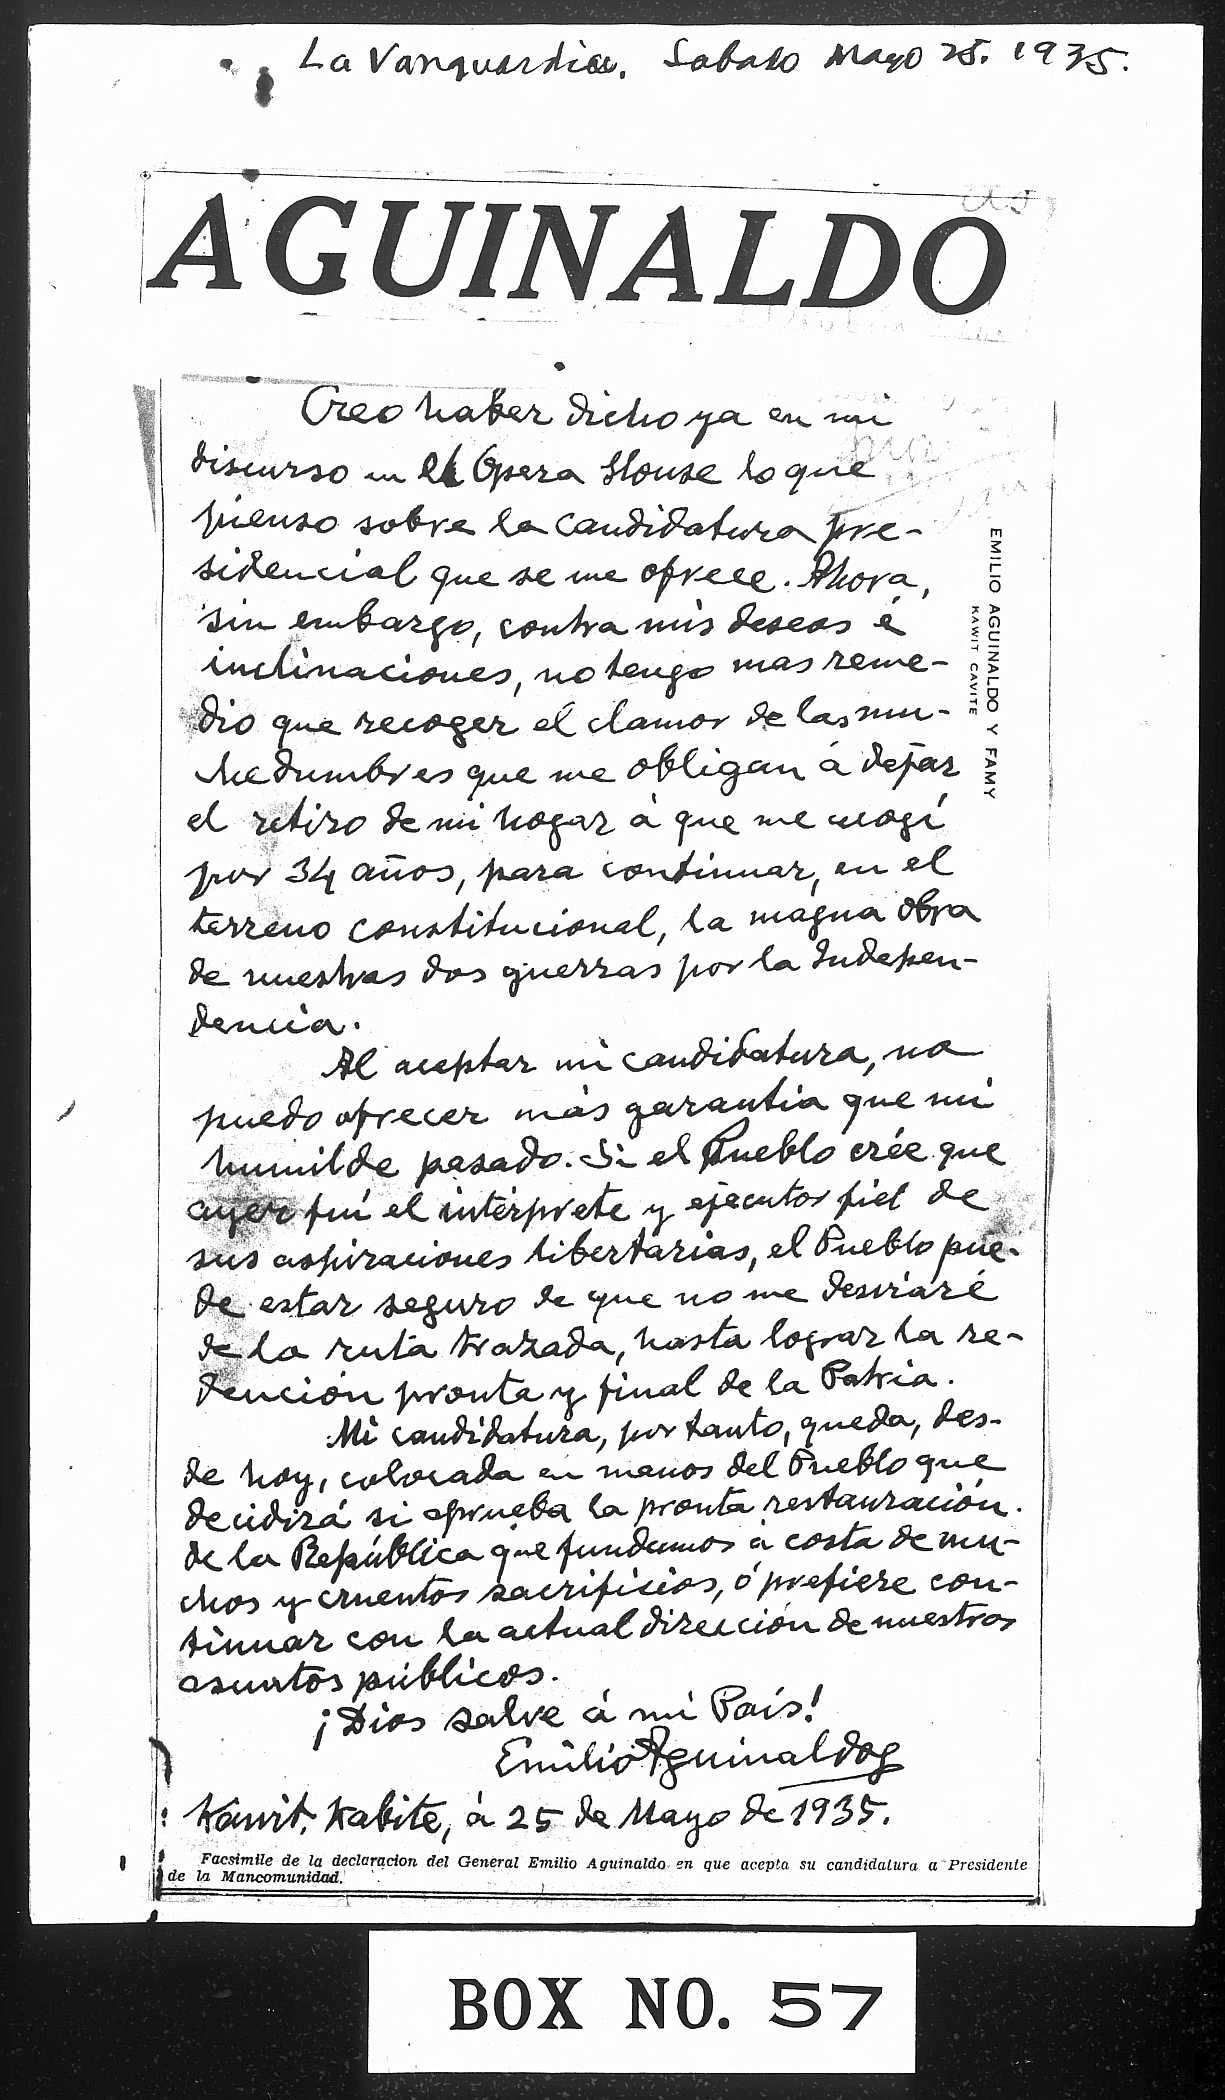 La Vanguardia. Sabado Mayo 25. 1935.
AGUINALDO
Creo haber dicho ya en mi
discurso en el Opera House lo que
pienso sobre la candidatura pre-
sidencial que se me ofrece. Ahora,
sin embargo, contra mis deseos é
inclinaciones, no tengo mas reme-
dio que recoger el clamor de las mu-
chedumbres que me obligan á dejar
el retiro de mi hogar á que me acogí
por 34 años, para continuar, en el
terreno constitucional, la magna obra
de nuestras dos guerras por la Indepen-
dencia.
Al aceptar mi candidatura, no
puedo ofrecer más garantia que mi
humilde pasado. Si el Pueblo crée que
ayer fuí el intérprete y ejecutor fiel de
sus aspiraciones libertarias, el Pueblo pue-
de estar seguro de que no me desviaré
de la ruta trazada, hasta lograr la re-
dención pronta y final de la Patria.
Mi candidatura, por tanto, queda, des-
de hoy, colocada en manos del Pueblo que
decidirá si aprueba la pronta restauración
de la República que fundamos á costa de mu-
chos y cruentos sacrificios, ó prefiere con-
tinuar con la actual dirección de nuestros
asuntos públicos.
¡Dios salve á mi País!
Emilio Aguinaldo
Kawit, Kabite, á 25 de Mayo de 1935.
EMILIO AGUINALDO Y FAMY
KAWIT CAVITE
Facsimile de la declaracion del General Emilio Aguinaldo en que acepta su candidatura a Presidente
de la Mancomunidad.
BOX NO. 57